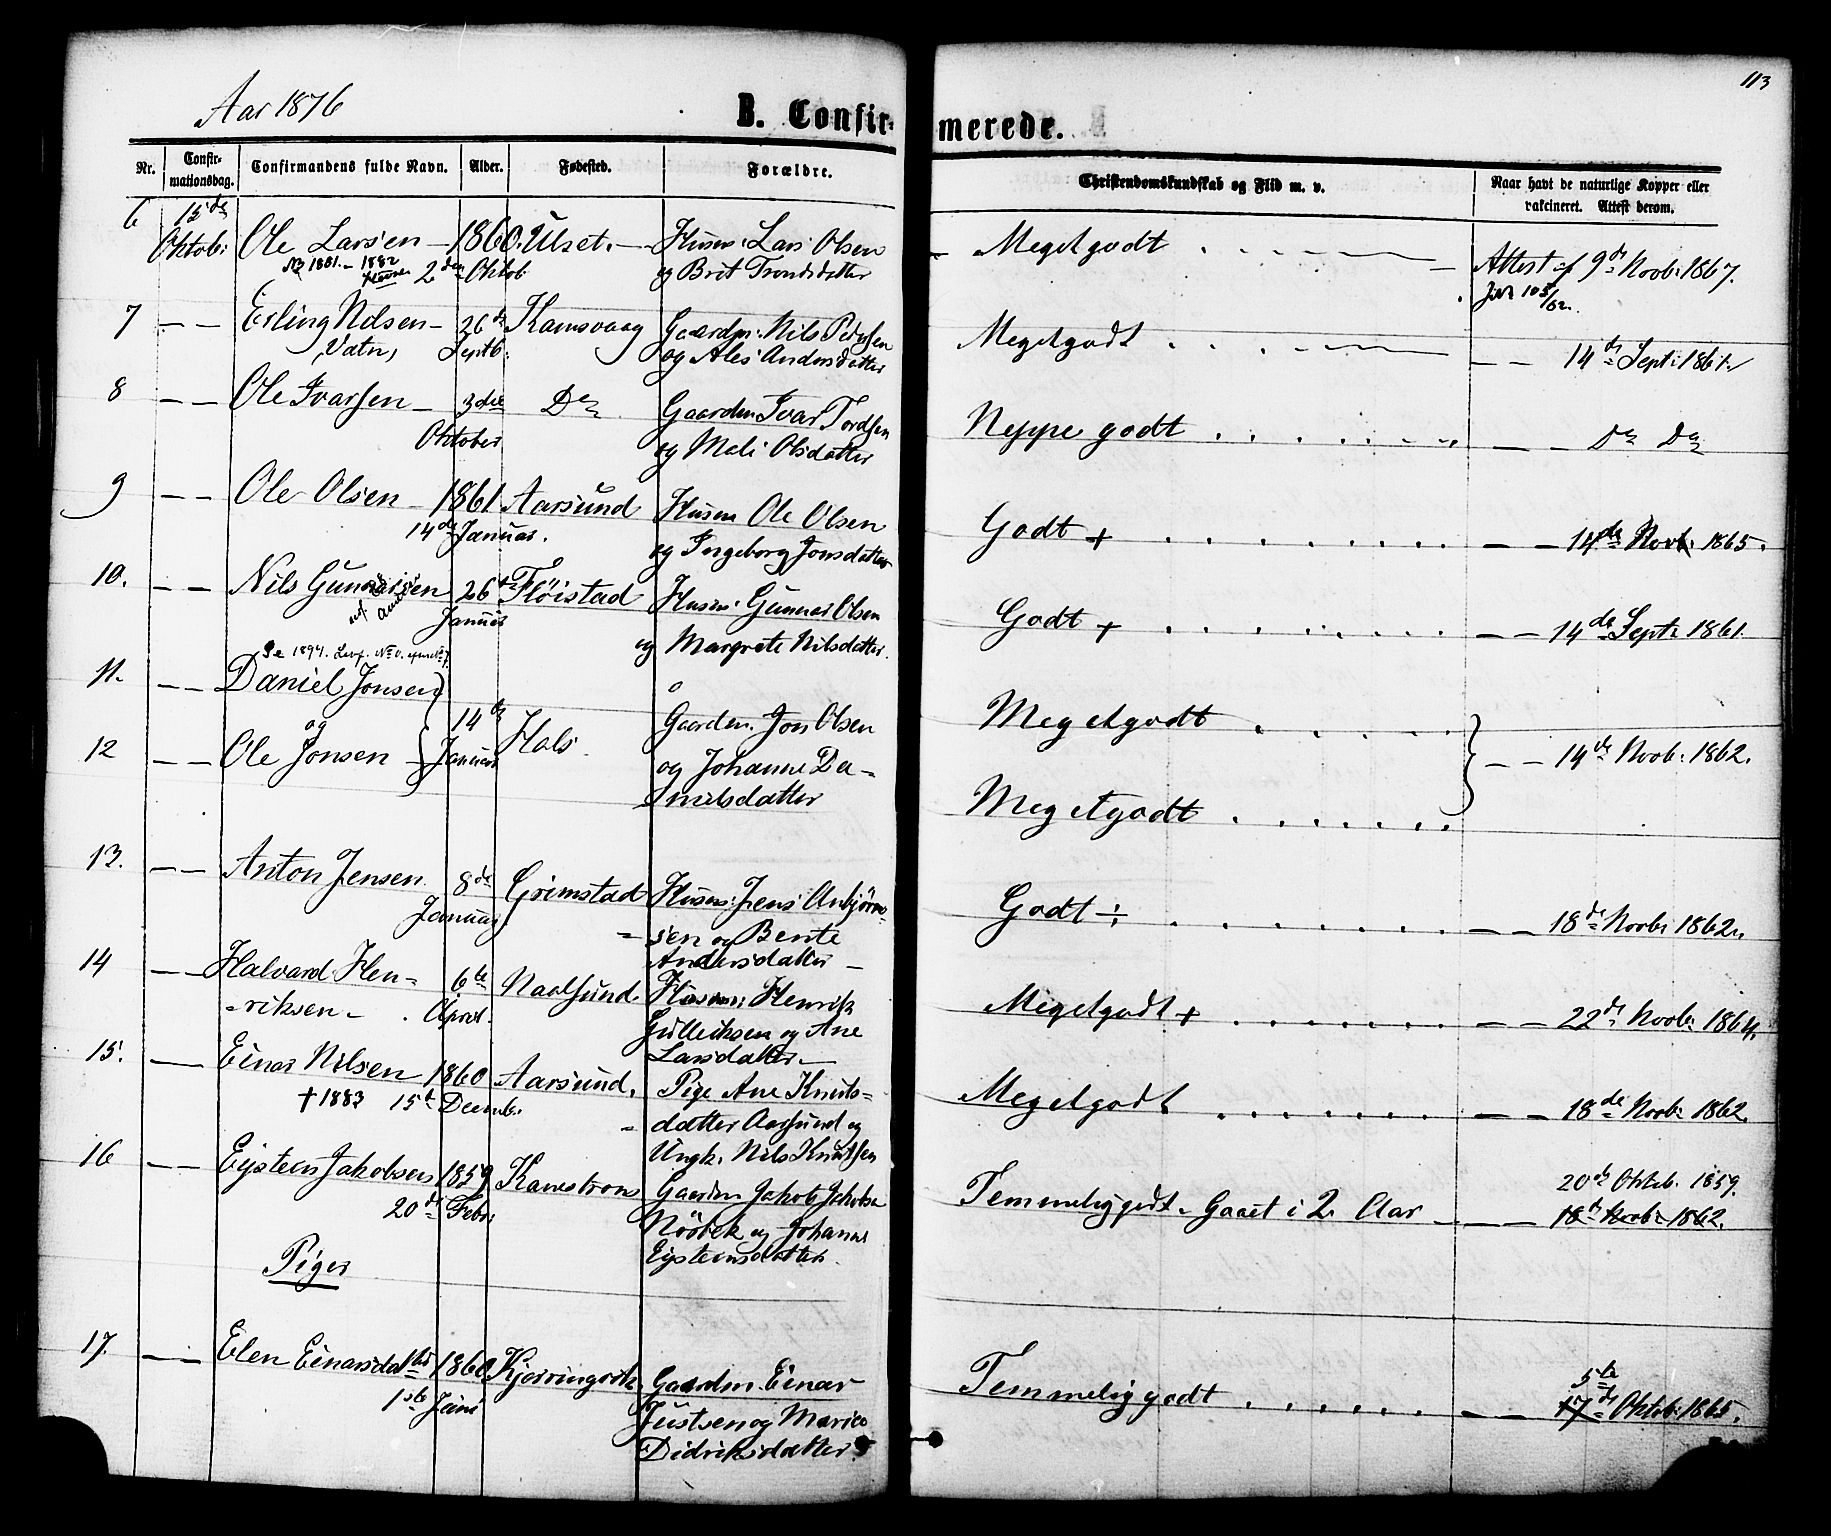 113
Aar 1876
B. Confirmerede.
Nr. Confirmationsdag. Confirmandens fulde Navn. Alder. Fødested. Forældre. Christendomskundskab og Flid m. v. Naar havt de naturlige Kopper eller vakcineret. Attest derom.
6 15de Oktob: Ole Larsen – 1860. Ulset. – Husm: Lars Olsen Megetgodt Attest af 9de Novb: 1867.
1881. – 1882 2den Oktob og Brit Trondsdatter
7 — — Erling Nilsen – 26de Ramsvaag Gaardm: Nils Pedersen Megetgodt — — 14de Sept: 1861.
Vatn, Septb: og Ales Andersdatter
8 — — Ole Ivarsen – 3die Do Gaardm Ivar Tordsen Neppe godt — — Do Do
Oktober og Mali Olsdatter
9 — — Ole Olsen – 1861 Aarsund Husm Ole Olsen Godt + — — 14de Novb: 1865.
14de Januar. og Ingeborg Jonsdatter
10. — — Nils Gunnarsen 26 Fløistad Husm: Gunnar Olsen Godt + — — 14de Septr 1861.
Januar og Margrete Nilsdatter.
Se 1894.
11. — — Daniel Jonsen Gaardm. Jon Olsen Megetgodt
og 14de Januar Hals. — — 14de Novb: 1862.
12 — — Ole Jonsen – og Johanne Da-
nielsdatter Megetgodt
13. — — Anton Jensen 8de Grimstad Husm: Jens Anbjørn- Godt ÷ — — 18de Novbr 1862.
Januar sen og Bente
Andersdatter –
14 — — Halvard Hen- 6te Naalsund. Husm: Henrik Megetgodt + — — 22de Novb: 1864.
-riksen – April. Gulleiksen og Ane
Larsdatter. –
15. — Einar Nilsen 1860 Aarsund. Pige Ane Knuts- Megetgodt — — 18de Novb: 1862.
† 1883 15de Decemb. datter Aarsund og
Ungk. Nils Knutsen
16 — — Eysteen Jakobsen 1859 Kanestrom Gaardm Jakob Jakobsen Temmeliggodt. Gaaet i 2 Aar — — 20de Oktob. 1859.
20de Febr: Nørbek og Johanne 18de Novb: 1862.
Eysteensdatter.
Piger
17. — — Elen Einarsdatter 1860 Kjørringvik Gaardm. Einar Temmelig godt — — 5te
1ste Juni Justsen og Maria 17de Oktob: 1865.
Didriksdatter.